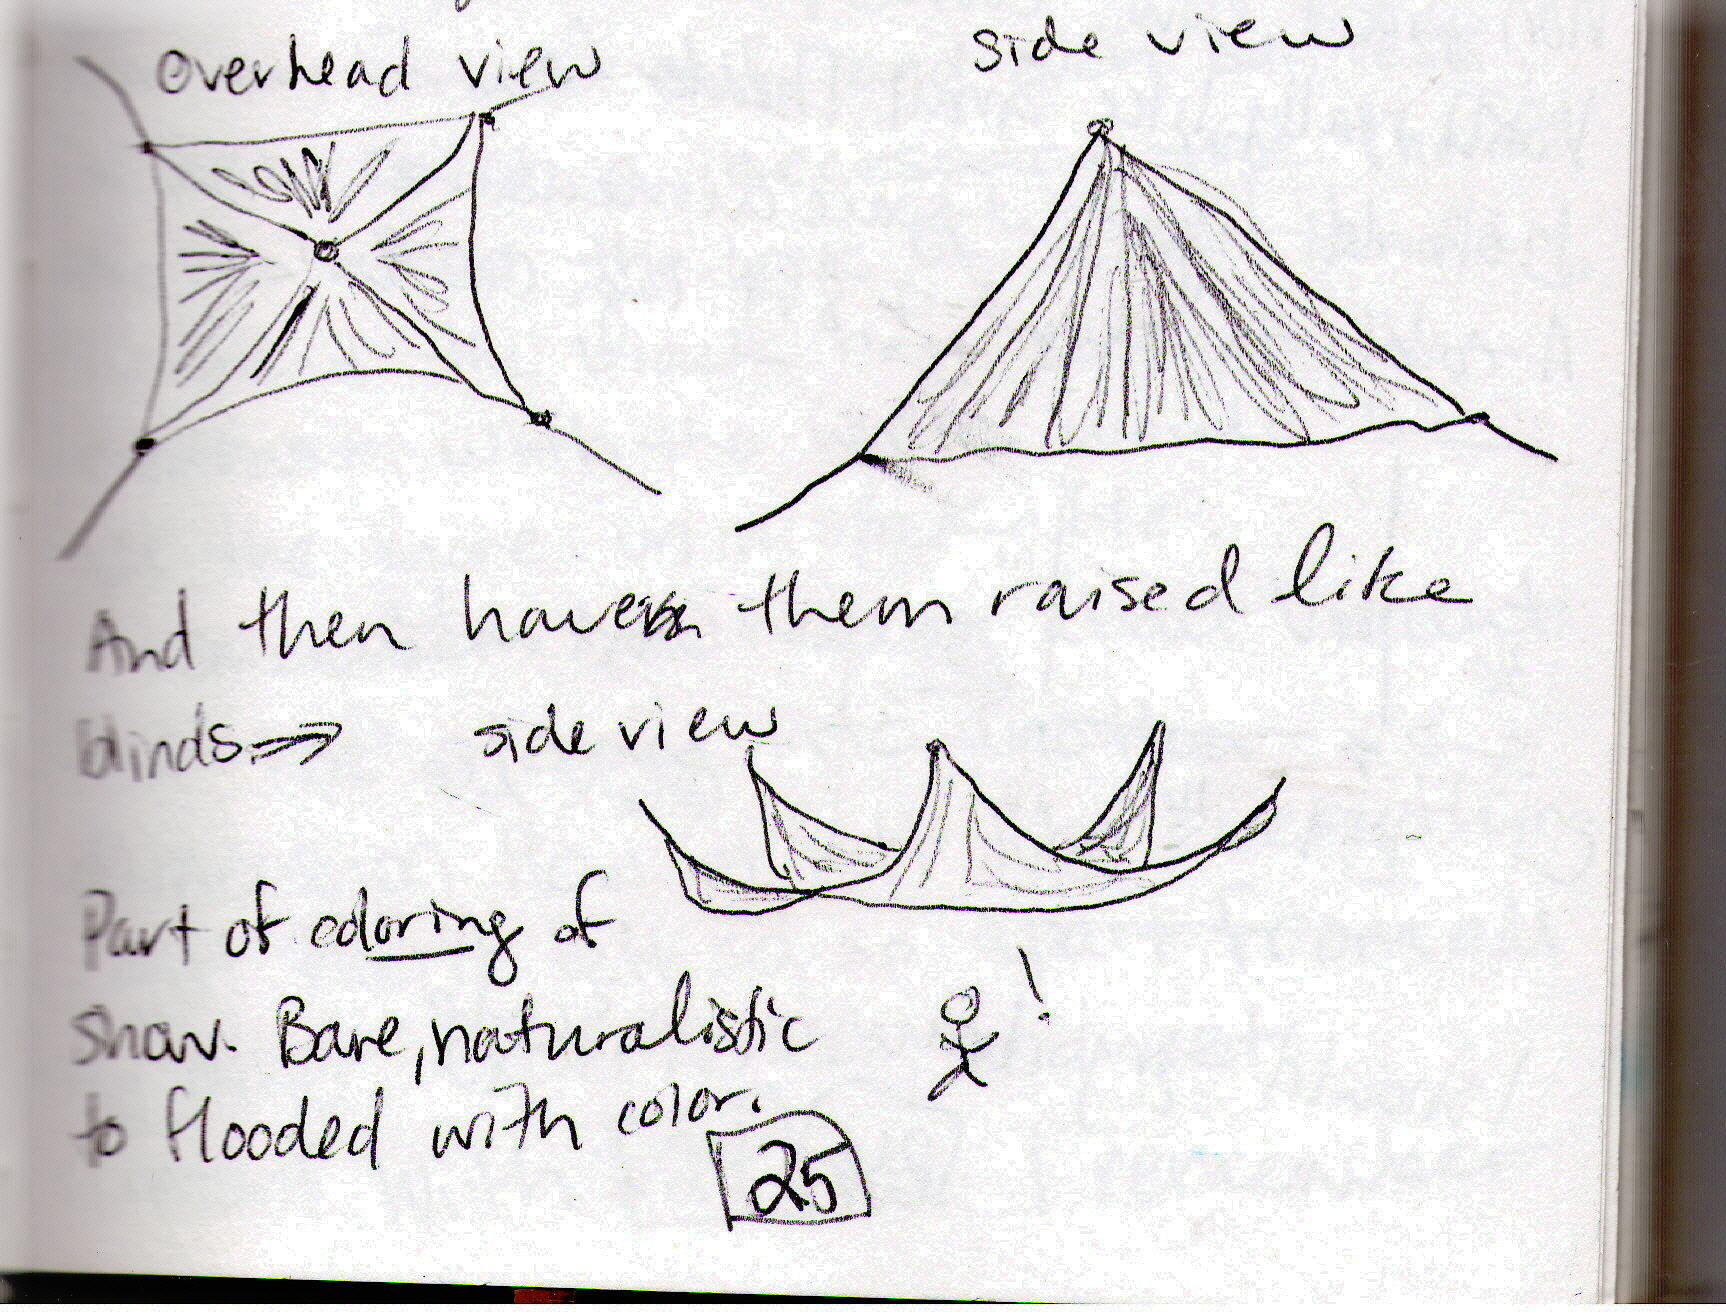 overhead view
side view
And then have them raised like
blinds ⇒ side view
Part of coloring of
show. Bare, naturalistic !
to flooded with color.
25